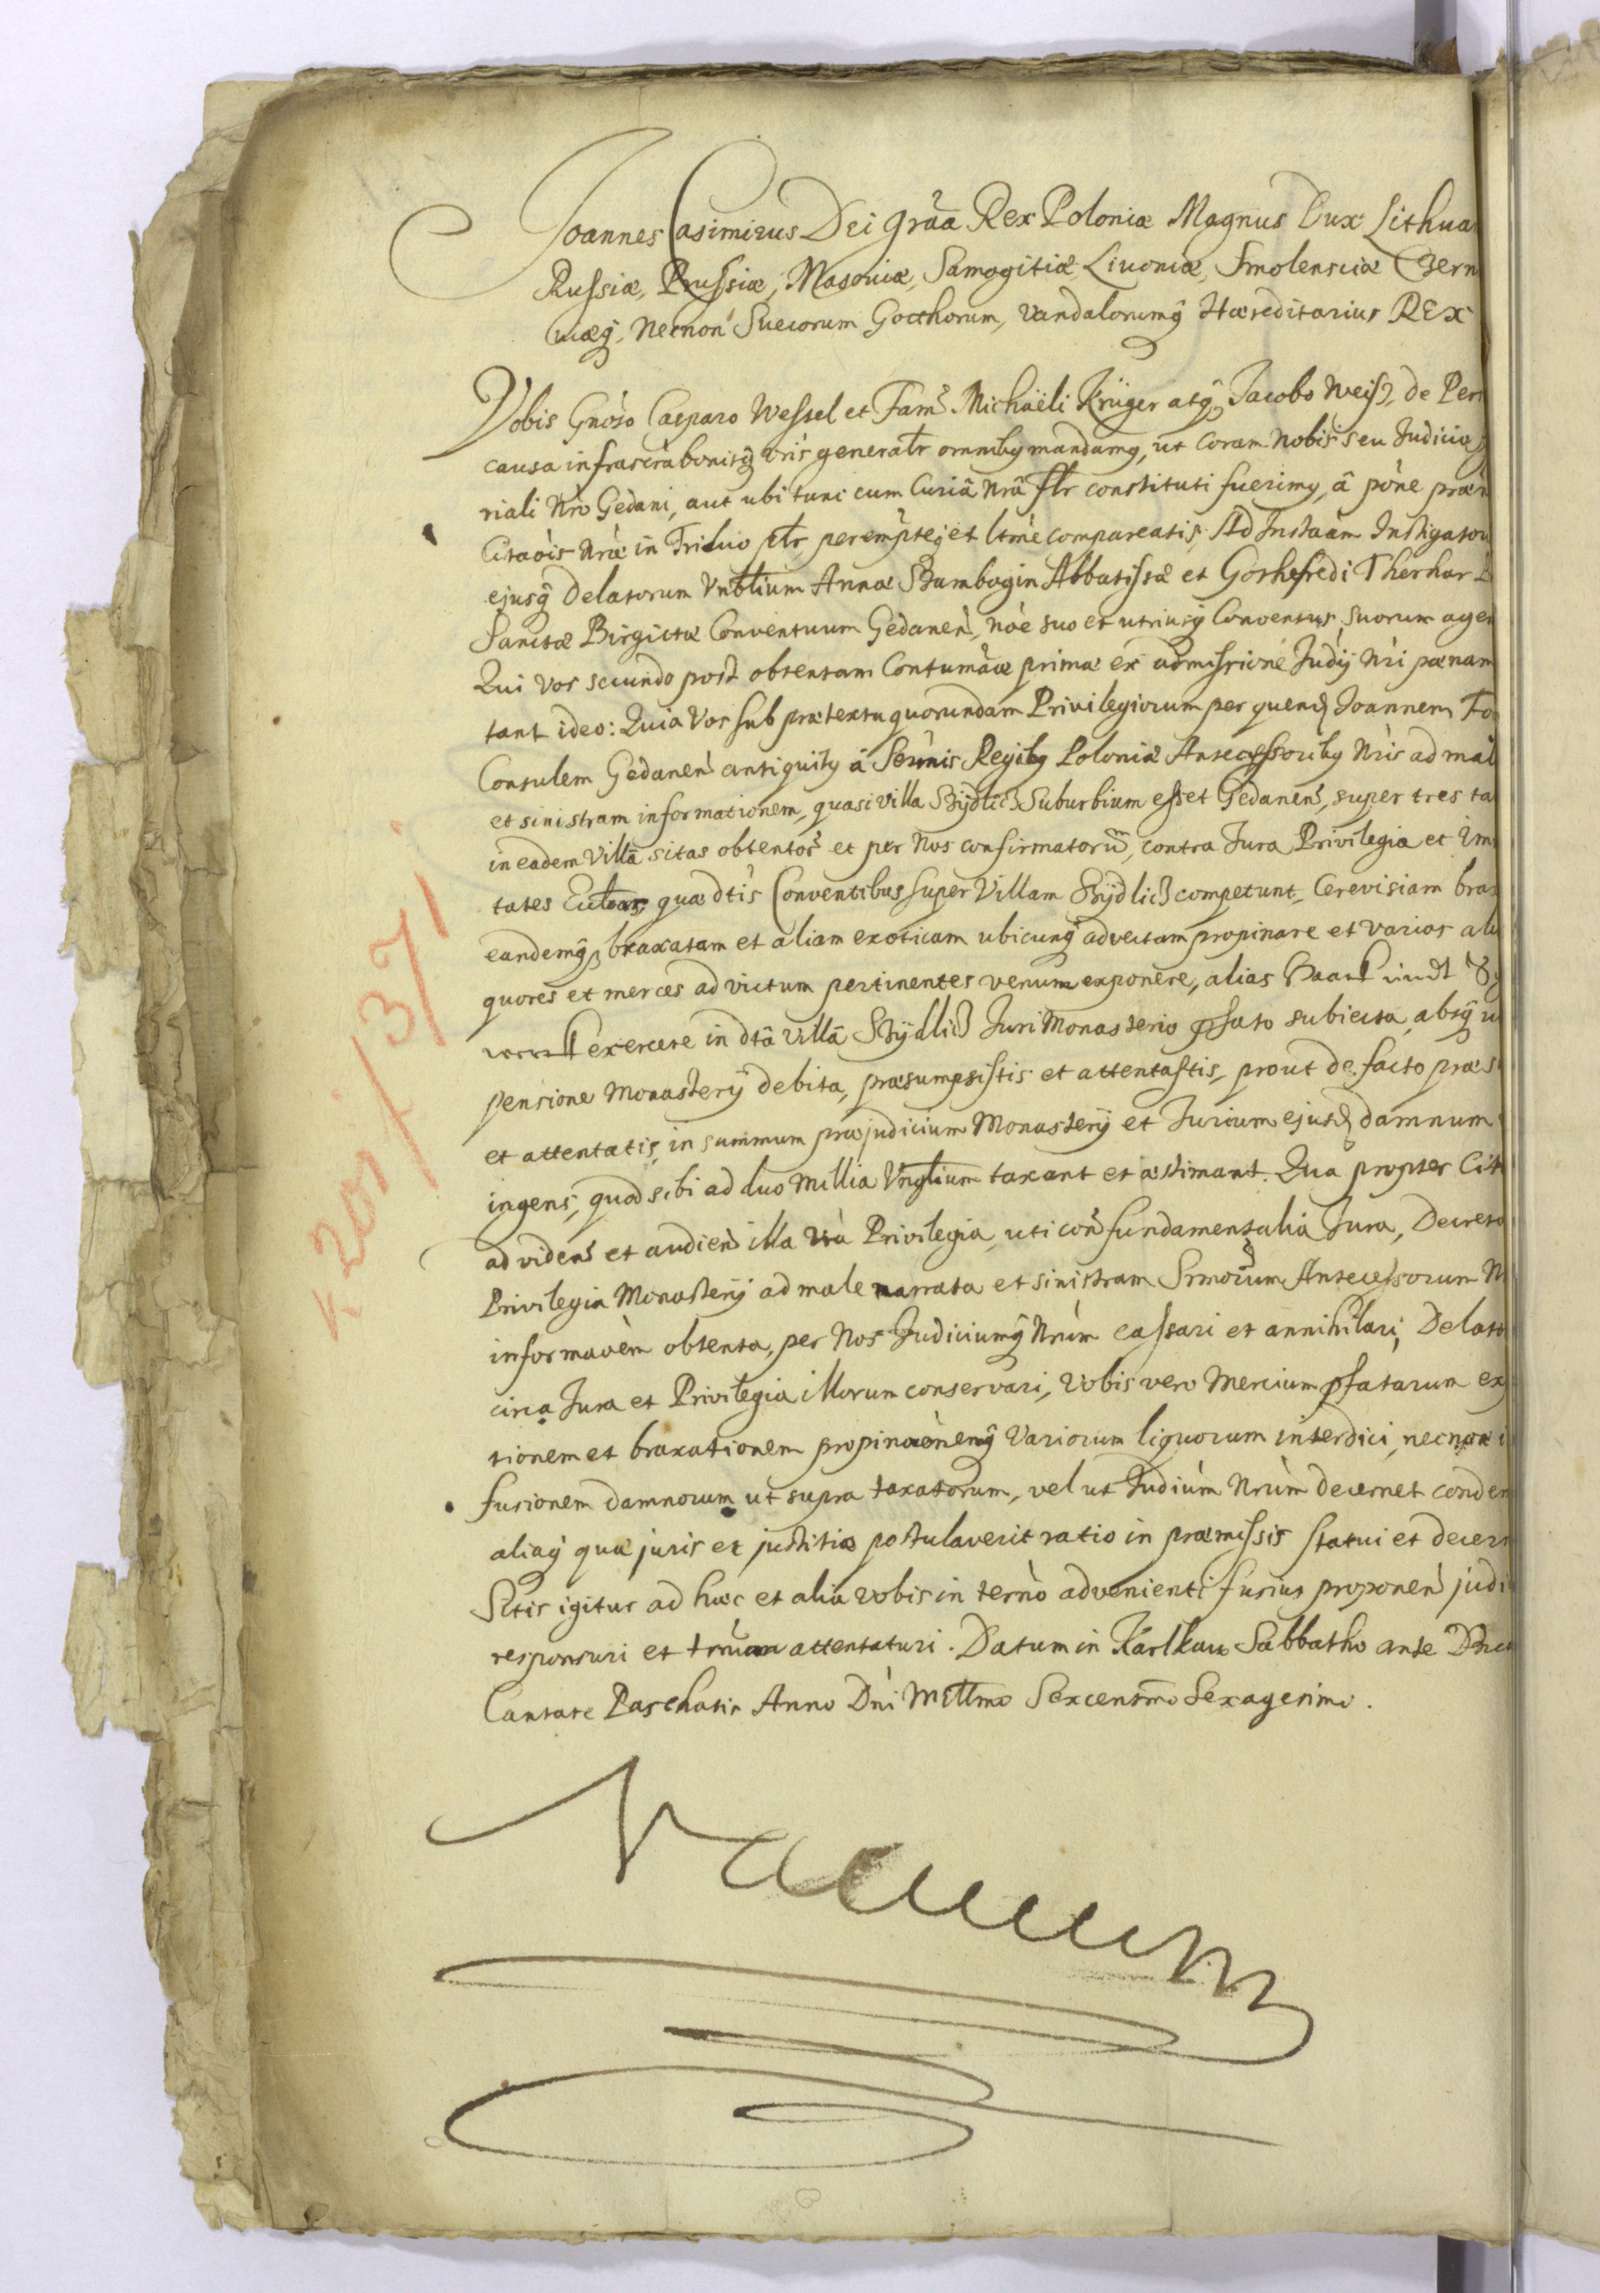 Joannes Casimirus Dei Grãa Rex Poloniæ Magnus Dux Lithua
Russiæ, Prussiæ, Masoviæ, Samogitiæ Livoniæ, Smolensciæ Czern
viæq̃, Necnon Suecorum Gotthorum, Vandalorumq̃ Hæreditarius REX
Vobis Gnoso Casparo Wessel et Fam. Michaëli Krüger atq̃ Jacobo Weiß, de Per
causa infrascra bonisq̃ vris generalr omnibq mandamq, ut coram Nobis seu Judicio
riali Nro Gedani, aut ubi tunc cum Curiâ Nrâ flr constituti fuerimq, â põne præn
Citaõis Nræ in Triduo plr, peremptẽ et ltmẽ compareatis, Ad Instaãm Instigator
ejusq̃ Delatorum Vnbłium Annæ Bambogin Abbatissæ et Gothefredi Therhar
Sanctæ Birgittæ Conventuum Gedanen, nõe suo et utriusq̃ Conventus suorum agen
Qui Vos secundo post obtentam Contumãciæ primæ ex admissione Judÿ Nri pœnam
tant ideo: Quia Vos sub prætextu quorundam Privilegiorum per quend Joannem Fo
Consulem Gedanen antiquitq â Serenis Regibq Poloniæ Antecessoribq Nris ad mal
et sinistram informationem, quasi villa Szÿdliß Suburbium esset Gedanen, super tres ta
in eadem Villâ sitas obtentor et per Nos confirmatorũ, contra Jura Privilegia et Im
tates Ecłar, quæ dtis Conventibus super Villam Szÿdliß competunt, Cerevisiam brax
eandemq̃ braxatam et aliam exoticam ubicunq̃ advectam propinare et varios ali
quores et merces ad victum pertinentes venum exponere, alias Haack undt
werck exercere in dtâ Villâ Szÿdliß Juri Monasterio pfato subiecta, absq̃
pensione Monasterÿ debita, præsumpsistis et attentastis, prout de facto præs
et attentatis, in summum præjudicium Monasterÿ et Jurium ejusd damnum
ingens, quod sibi ad duo Millia Vnglium taxant et æstimant. Qua propter Cit
ad viden et audien illa Vrã Privilegia, uti con fundamentalia Jura, Decreta
Privilegia Monasterÿ ad male narrata et sinistram Srmorum Antecessorum N
informaõem obtenta, per Nos Judiciumq̃ Nrum cassari et annihilari, Delato
circa Jura et Privilegia illorum conservari, Vobis vero Mercium pfatarum ex
tionem et braxationem propinaõnemq̃ Variorum liquorum interdici, necnon
fusionem damnorum ut supra taxatorum, vel ut Judium Nrum decernet conden
aliaq̃ quæ juris et justitiæ postulaverit ratio in præmissis statui et decern
Sitis igitur ad hæc et alia vobis in terno advenienti fusius proponen judi
responsuri et trum attentaturi. Datum in Karlkau Sabbatho ante Dnic
Cantate Paschatis Anno Dni Mełłmo Sexcentmo Sexagesimo.
K 201/371